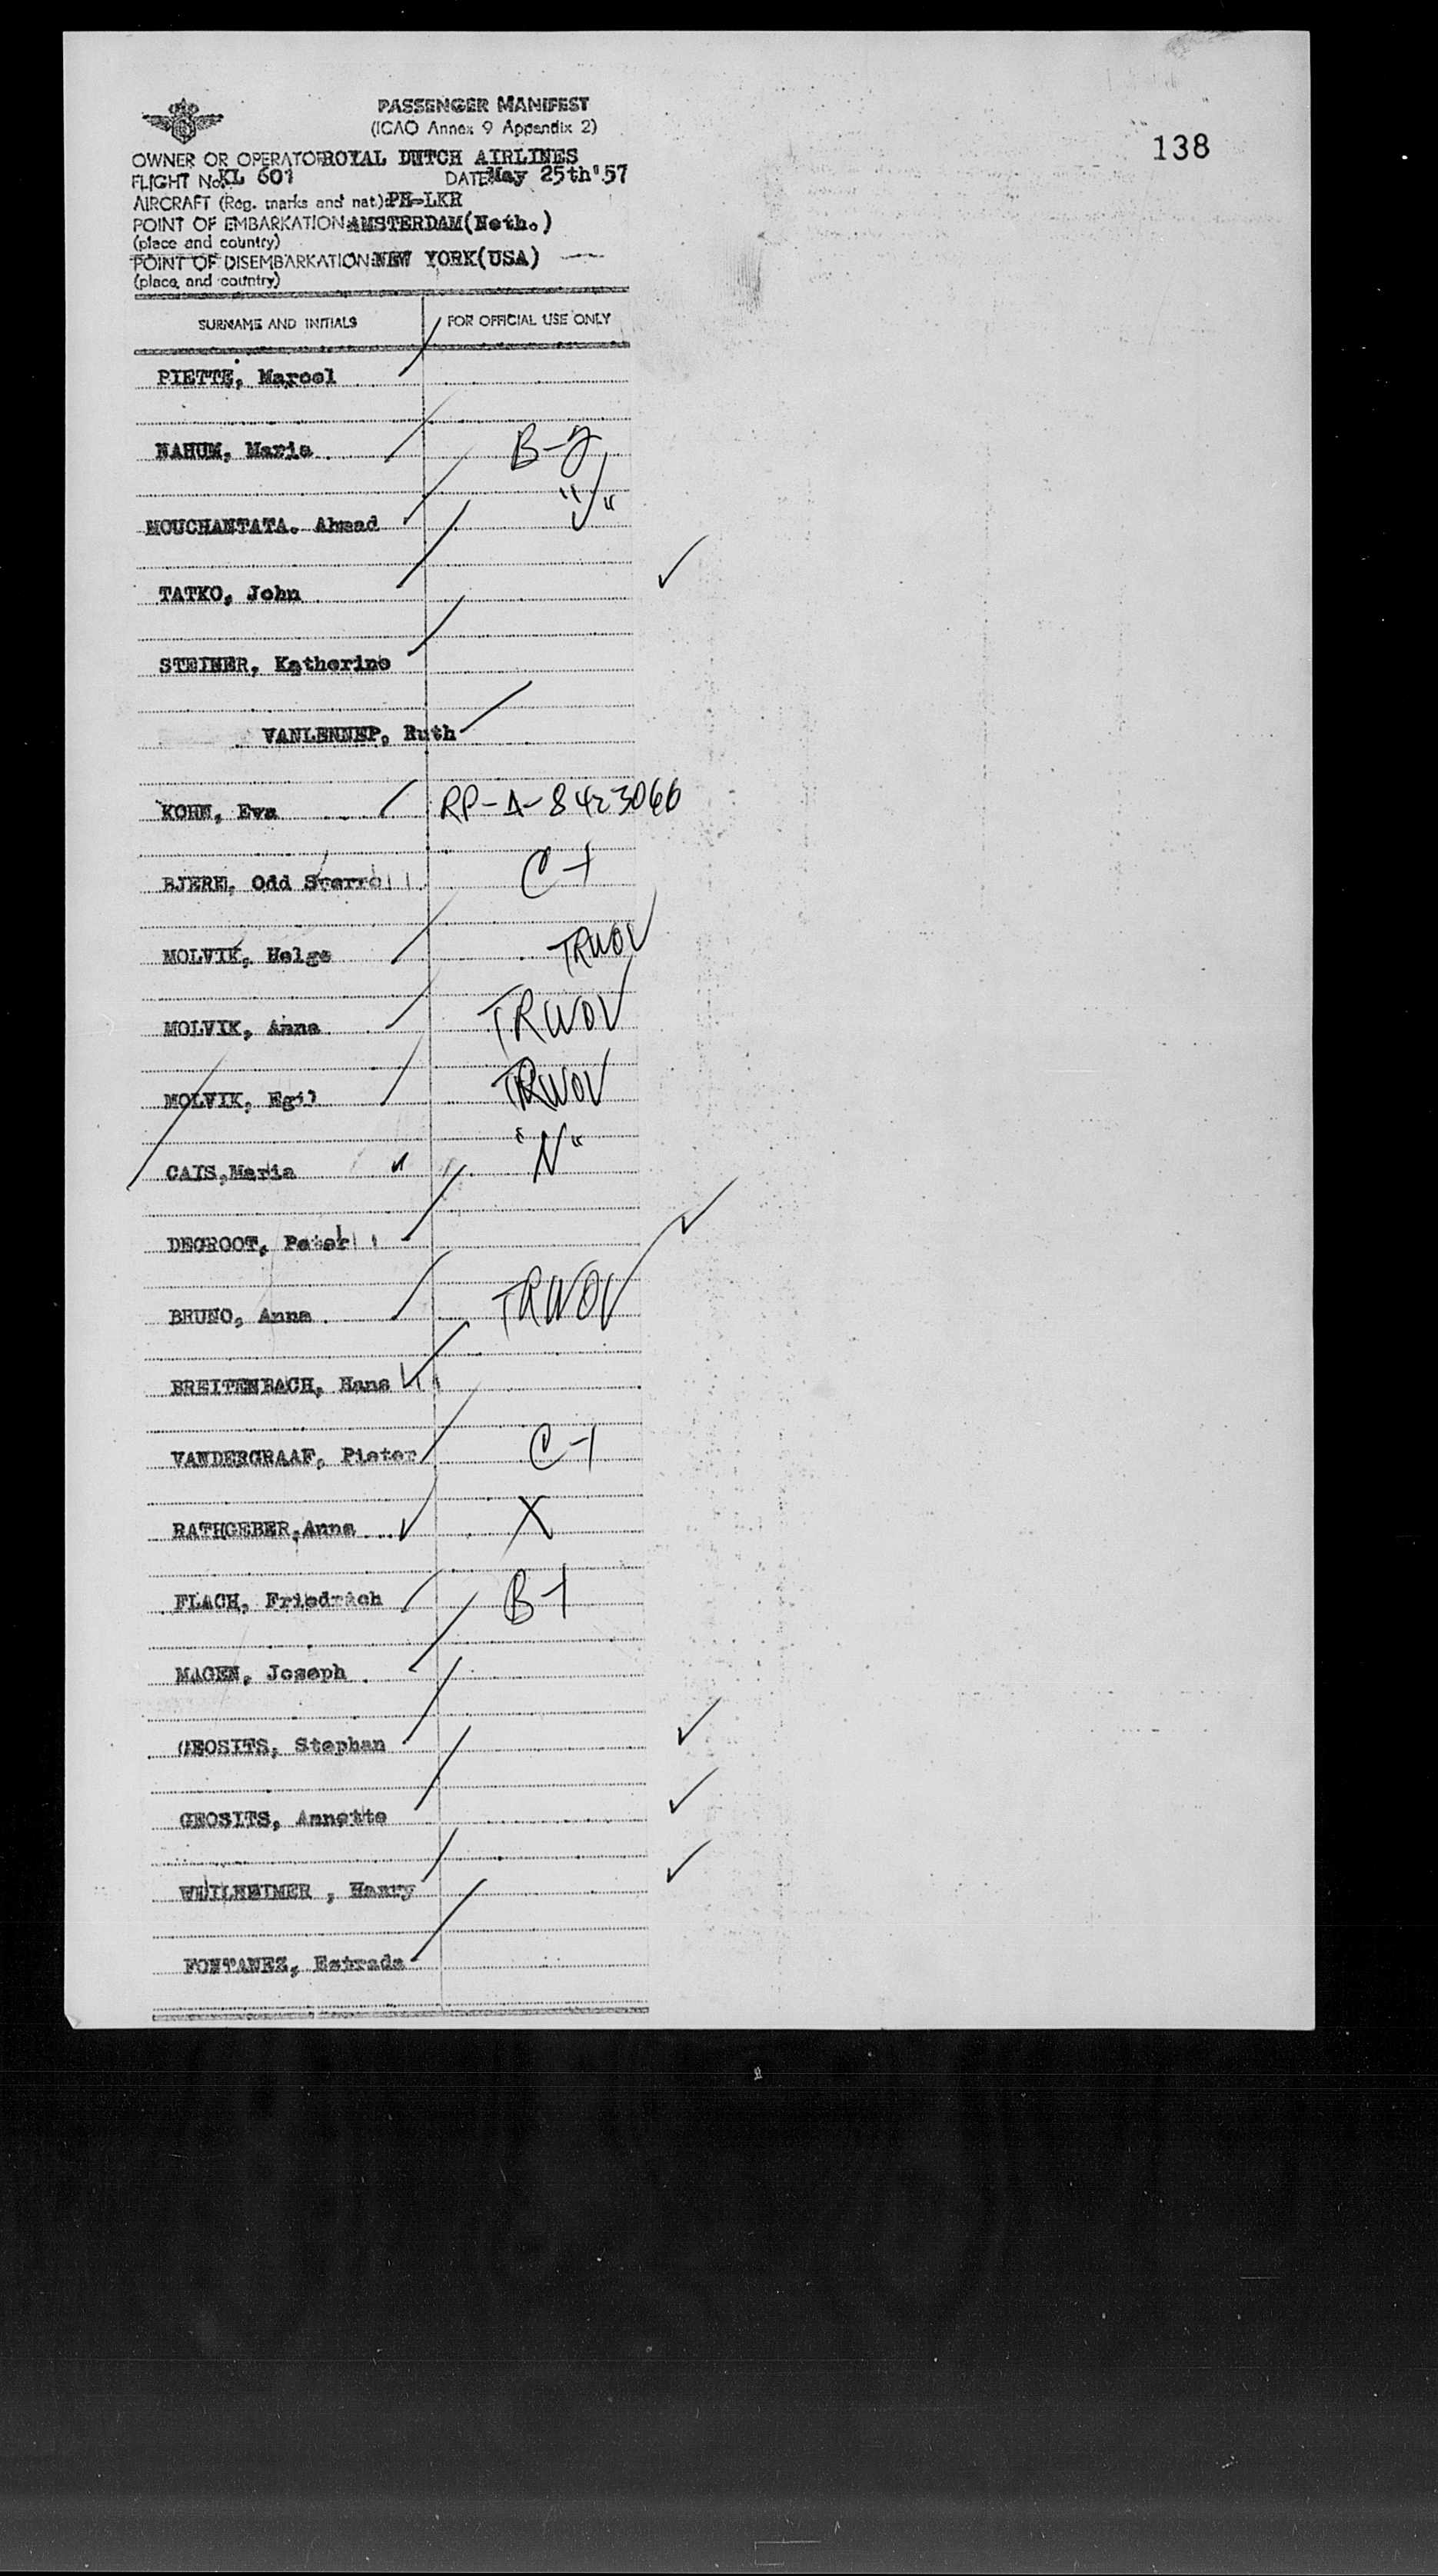 138
PASSENGER MANIFEST
(ICAO Annex 9 Appendix 2)
OWNER OR OPERATOR ROYAL DUTCH AIRLINES
FLIGHT No. KL 601 DATE: May 25th'57
AIRCRAFT (Reg. marks and nat): PH-LKR
POINT OF EMBARKATION: AMSTERDAM (Neth.)
(place and country)
POINT OF DISEMBARKATION: NEW YORK (USA)
(place and country)
SURNAME AND INITIALS FOR OFFICIAL USE ONLY
PIETTE, Marcel
NAHUM, Maria B-2
MOUCHANTATA. Ahmad "J"
TATKO, John
STEINER, Katherine
VANLENNEP, Ruth
KOHN, Eva RP-A-8423066
BJERE, Odd Sverre C-1
MOLVIK, Helge TRWOV
MOLVIK, Anna TRWOV
MOLVIK, Egil TRWOV
CAIS, Maria "N"
DEGROOT, Peter
BRUNO, Anna TRWOV
BREITENBACH, Hans
VANDERGRAAF, Pieter C-1
RATHGEBER, Anna X
FLACH, Friedrich B-1
MAGEN, Joseph
GEOSITS, Stephan
GEOSITS, Annette
WEILHEIMER, Harry
FONTANEZ, Estrada